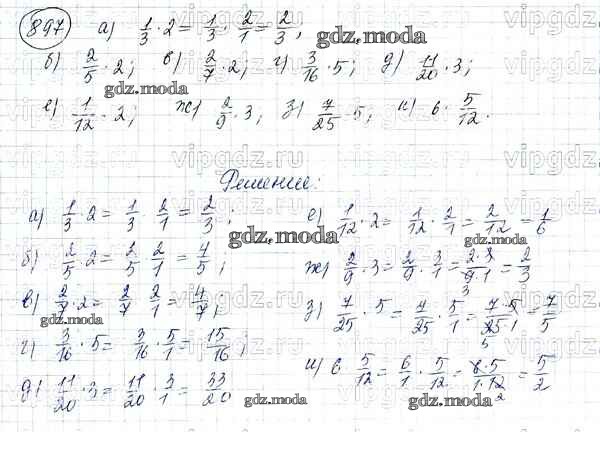 897 а) 1/3 · 2 = 1/3 · 2/1 = 2/3;
gdz.moda
б) 2/5 · 2; в) 2/7 · 2; г) 3/16 · 5; д) 11/20 · 3;
gdz.moda
е) 1/12 · 2; ж) 2/9 · 3; з) 7/25 · 5; и) 6 · 5/12.
vipgdz.ru
Решение:
а) 1/3 · 2 = 1/3 · 2/1 = 2/3;
б) 2/5 · 2 = 2/5 · 2/1 = 4/5;
в) 2/7 · 2 = 2/7 · 2/1 = 4/7;
г) 3/16 · 5 = 3/16 · 5/1 = 15/16;
д) 11/20 · 3 = 11/20 · 3/1 = 33/20
е) 1/12 · 2 = 1/12 · 2/1 = 2/12 = 1/6
ж) 2/9 · 3 = 2/9 · 3/1 = 2·3/9·1 = 2/3
з) 7/25 · 5 = 7/25 · 5/1 = 7·5/25·1 = 7/5
и) 6 · 5/12 = 6/1 · 5/12 = 6·5/1·12 = 5/2
gdz.moda
gdz.moda
gdz.moda
gdz.moda
gdz.moda